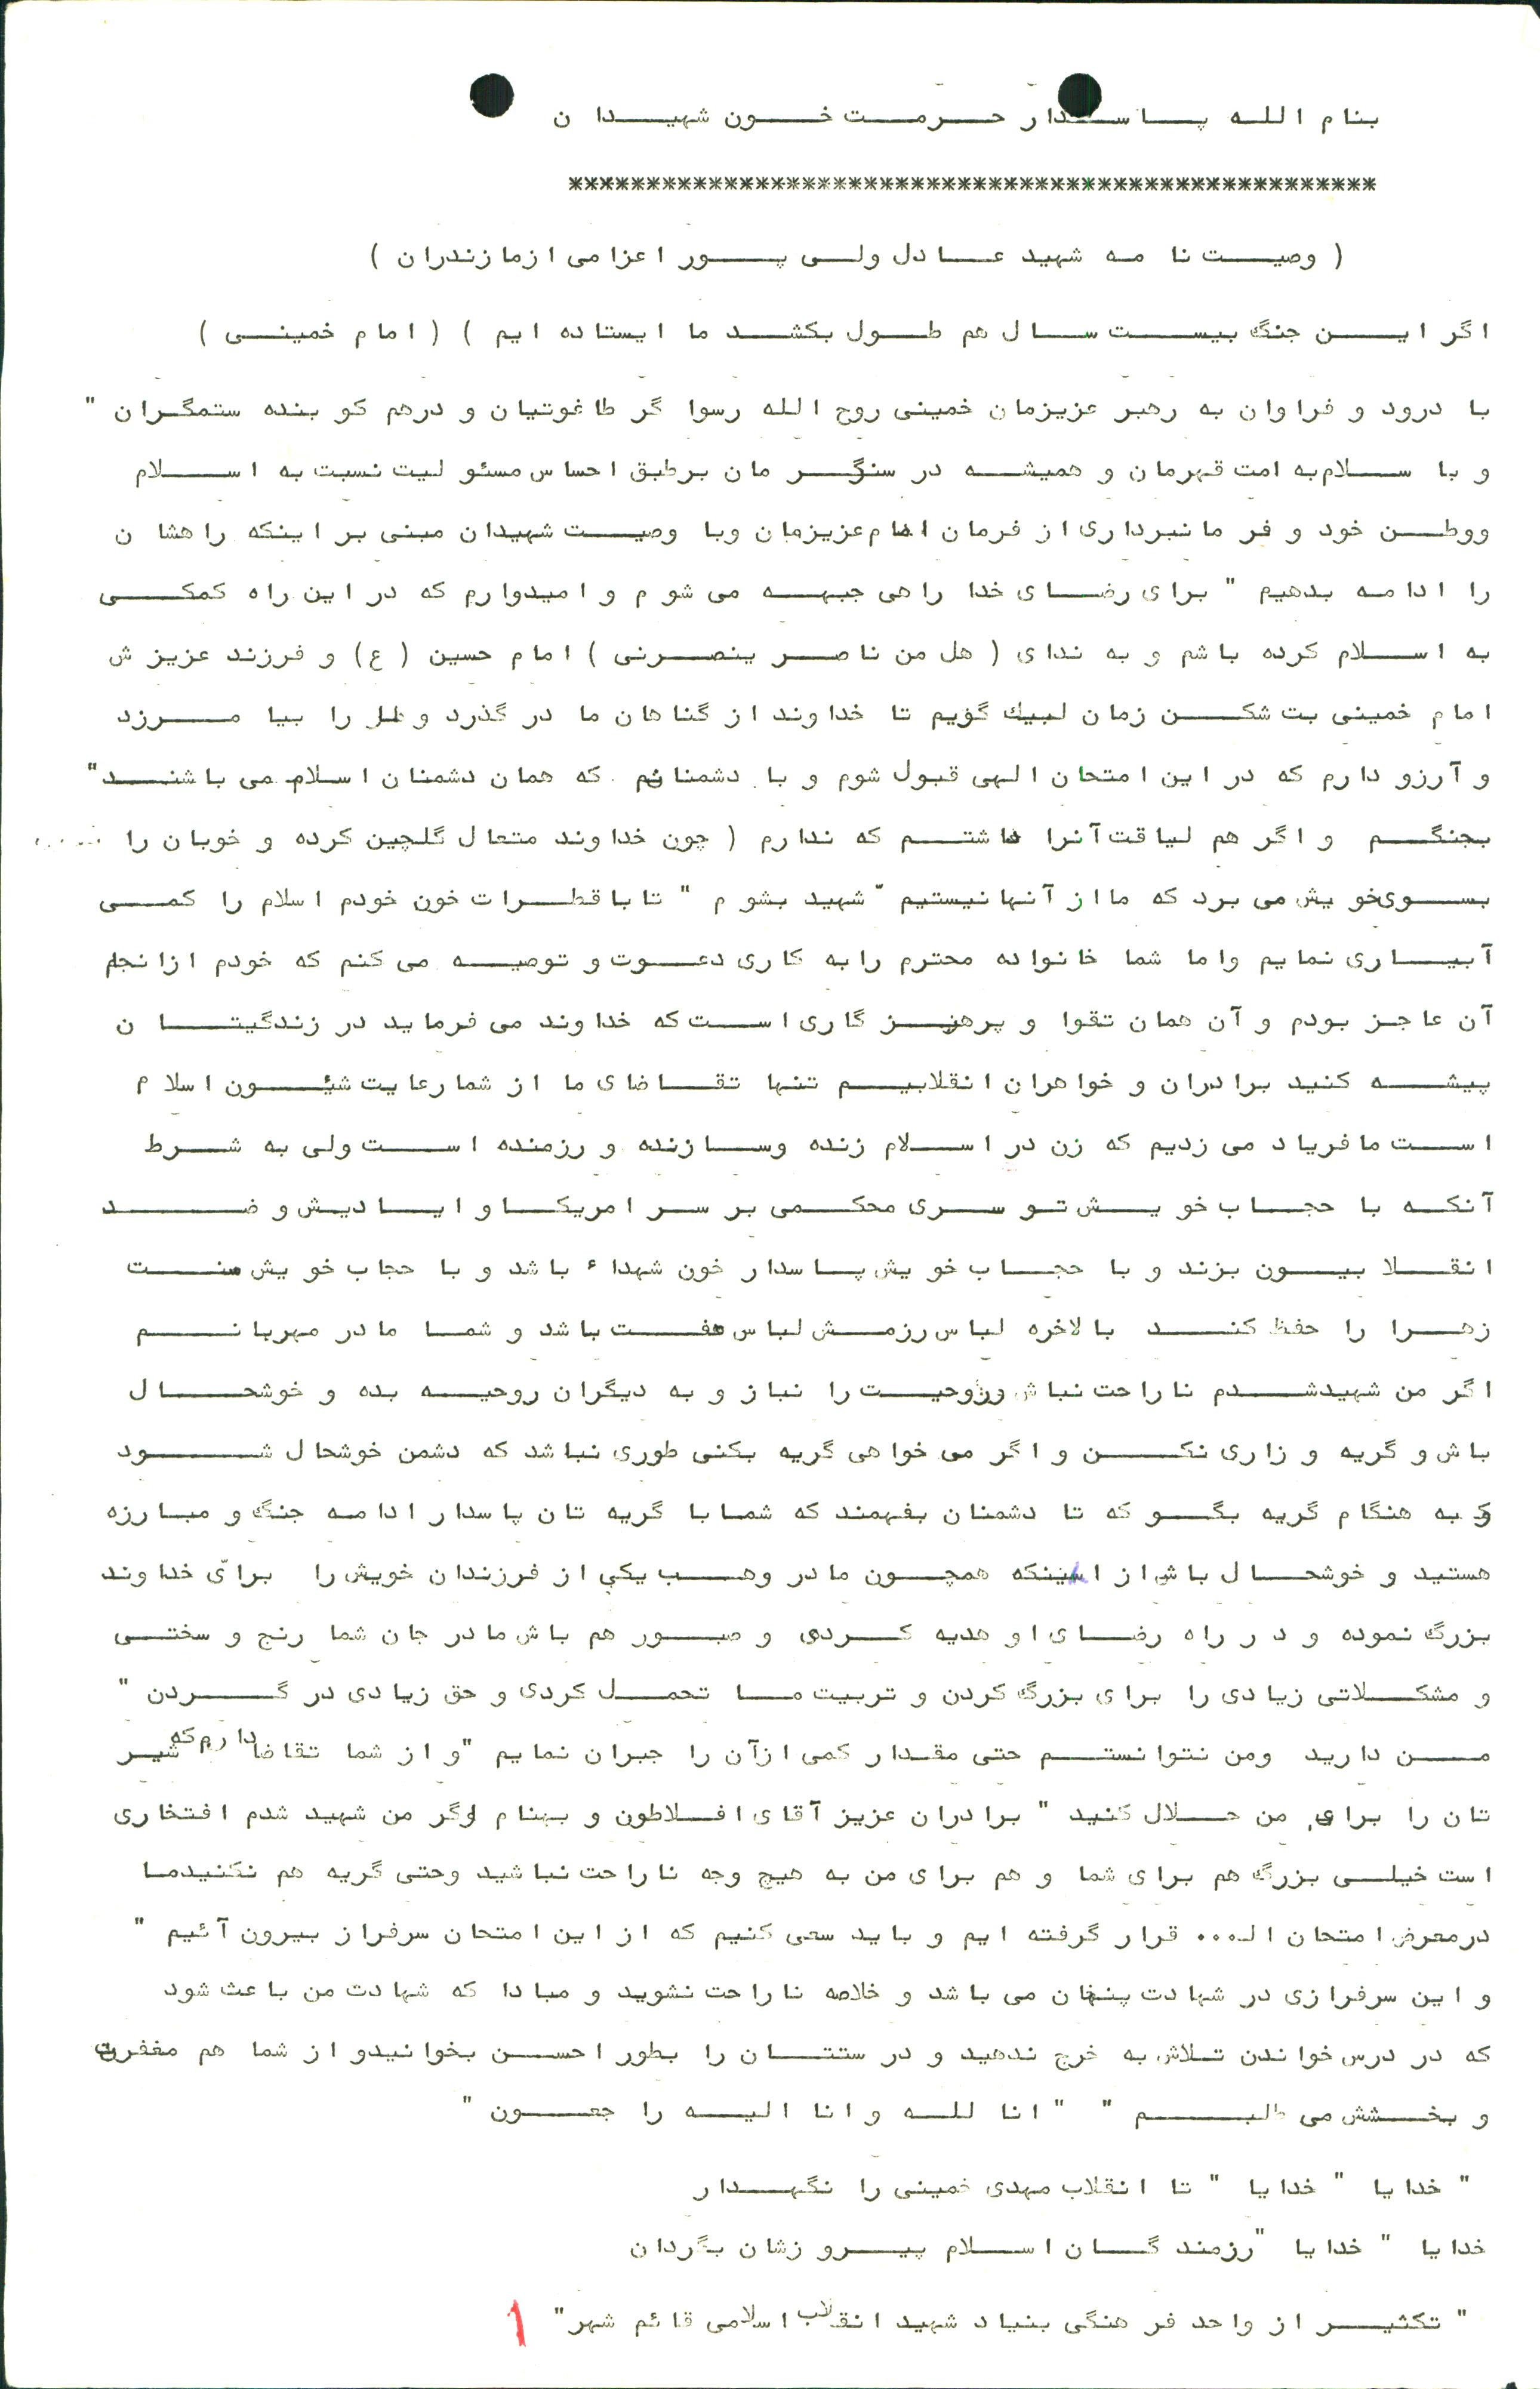 بنام الله پاسدار حرمت خون شهیدان
****************************************************
( وصیت نامه شهید عادل ولی پور اعزامی ازمازندران )
اگر این جنگ بیست سال هم طول بکشد ما ایستاده ایم ) ( امام خمینی )
با درود و فراوان به رهبر عزیزمان خمینی روح الله رسوا گر طاغوتیان و درهم کوبنده ستمگران "
و با سلام به امت قهرمان و همیشه در سنگر مان برطبق احساس مسئولیت نسبت به اسلام
ووطن خود و فرمانبرداری از فرمان امام عزیزمان وبا وصیت شهیدان مبنی بر اینکه راهشان
را ادامه بدهیم " برای رضای خدا راهی جبهه می شوم و امیدوارم که در این راه کمکی
به اسلام کرده باشم و به ندای ( هل من ناصر ینصرنی ) امام حسین (ع) و فرزند عزیزش
امام خمینی بت شکن زمان لبیک گویم تا خداوند از گناهان ما در گذرد و را بیا مرزد
و آرزو دارم که در این امتحان الهی قبول شوم و با دشمنانم که همان دشمنان اسلام می باشند"
بجنگم و اگر هم لیاقت آنرا داشتم که ندارم ( چون خداوند متعال گلچین کرده و خوبان را .....
بسوی خویش می برد که ما از آنها نیستیم " شهید بشوم " تا با قطرات خون خودم اسلام را کمی
آبیاری نمایم واما شما خانواده محترم را به کاری دعوت و توصیه می کنم که خودم ازانجام
آن عاجز بودم و آن همان تقوا و پرهیز گاری است که خداوند می فرماید در زندگیتان
پیشه کنید برادران و خواهران انقلابیم تنها تقاضای ما از شما رعایت شئون اسلام
است ما فریاد می زدیم که زن در اسلام زنده وسازنده و رزمنده است ولی به شرط
آنکه با حجاب خویش تو سری محکمی بر سر امریکا و ایادیش و ضد
انقلابیون بزند و با حجاب خویش پاسدار خون شهداء باشد و با حجاب خویش سنت
زهرا را حفظ کند بالاخره لباس رزمش لباس عفت باشد و شما مادر مهربانم
اگر من شهید شدم ناراحت نباش وروحیت را نباز و به دیگران روحیه بده و خوشحال
باش و گریه و زاری نکن و اگر می خواهی گریه بکنی طوری نباشد که دشمن خوشحال شود
و به هنگام گریه بگو که تا دشمنان بفهمند که شما با گریه تان پاسدار ادامه جنگ و مبارزه
هستید و خوشحال باش از اینکه همچون مادر وهب یکی از فرزندان خویش را برای خداوند
بزرگ نموده و در راه رضای او هدیه کردی و صبور هم باش مادر جان شما رنج و سختی
و مشکلاتی زیادی را برای بزرگ کردن و تربیت ما تحمل کردی و حق زیادی در گردن "
من دارید ومن نتوانستم حتی مقدار کمی ازآن را جبران نمایم "و از شما تقاضا دارم که شیر
تان را برای من حلال کنید " برادران عزیز آقای افلاطون و بهنام اگر من شهید شدم افتخاری
است خیلی بزرگ هم برای شما و هم برای من به هیچ وجه ناراحت نباشید وحتی گریه هم نکنیدما
درمعرض امتحان الـ... قرار گرفته ایم و باید سعی کنیم که از این امتحان سرفراز بیرون آئیم "
و این سرفرازی در شهادت پنهان می باشد و خلاصه ناراحت نشوید و مبادا که شهادت من باعث شود
که در درس خواندن تلاش به خرج ندهید و درستتان را بطور احسن بخوانیدو از شما هم مغفرت
و بخشش می طلبم " " انا لله و انا الیه را جعون "
" خدایا " خدایا " تا انقلاب مهدی خمینی را نگهدار
خدایا " خدایا "رزمندگان اسلام پیروزشان بگردان
" تکثیر از واحد فرهنگی بنیاد شهید انقلاب اسلامی قائم شهر" ۱